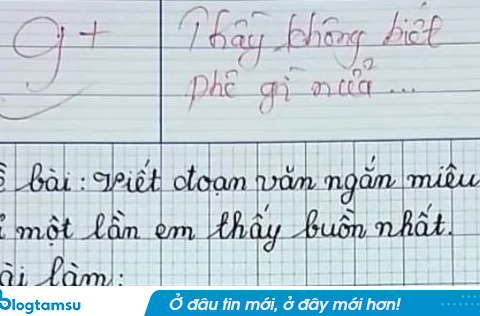 9+
Thầy không biết
phê gì nữa ...
ề bài: Viết đoạn văn ngắn miêu
ả một lần em thấy buồn nhất.
ài làm:
blogtamsu
Ở đâu tin mới, ở đây mới hơn!